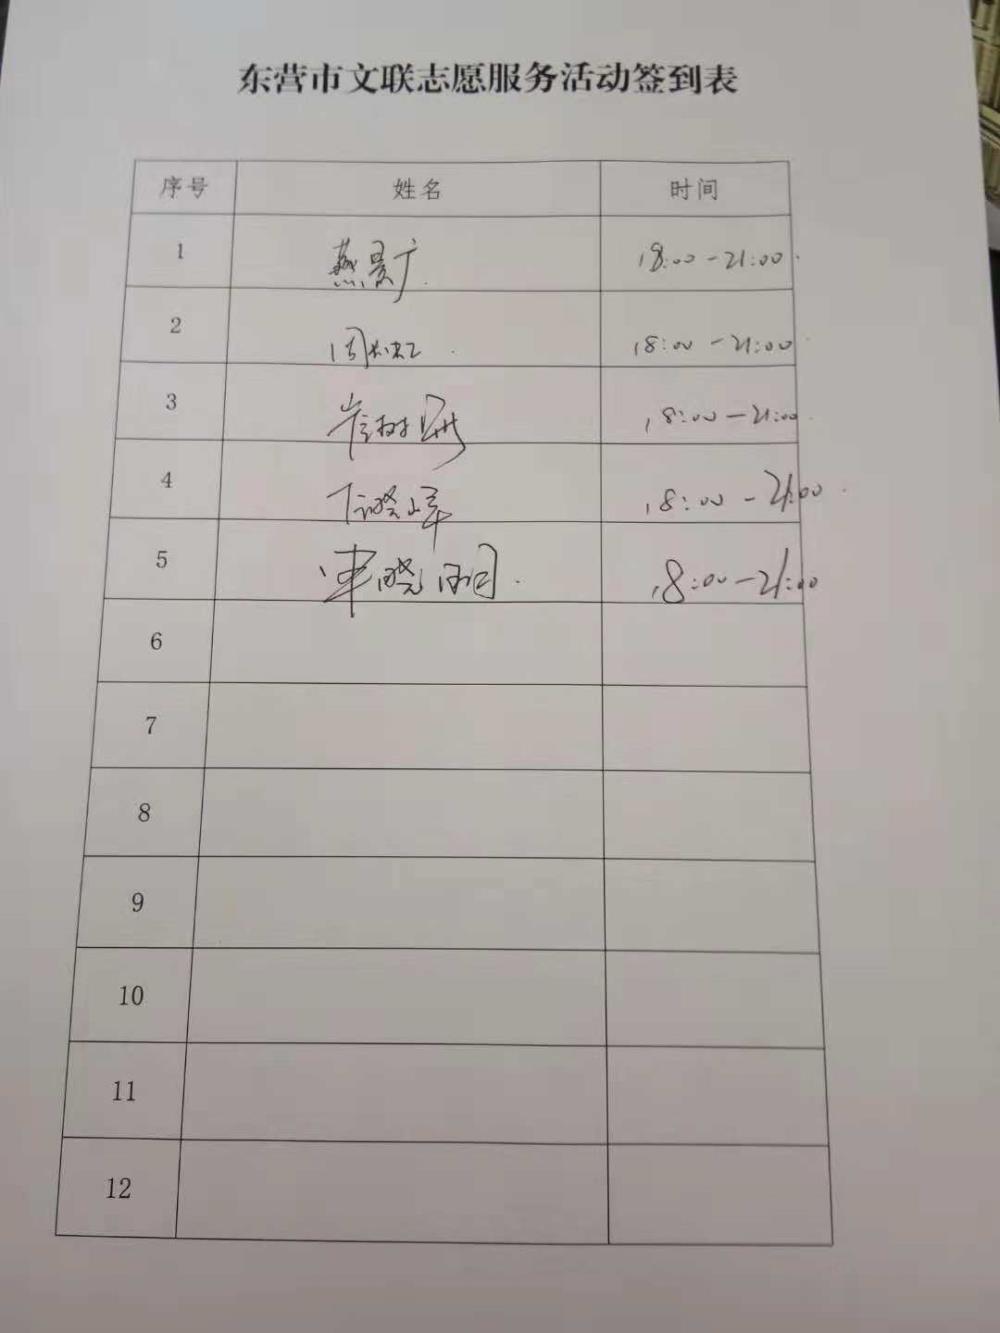 东营市文联志愿服务活动签到表
序号 姓名 时间
1 燕景广 18:00-21:00
2 周 18:00-21:00
3 崔树 18:00-21:00
4 晓峰 18:00-21:00
5 晓明 18:00-21:00
6
7
8
9
10
11
12